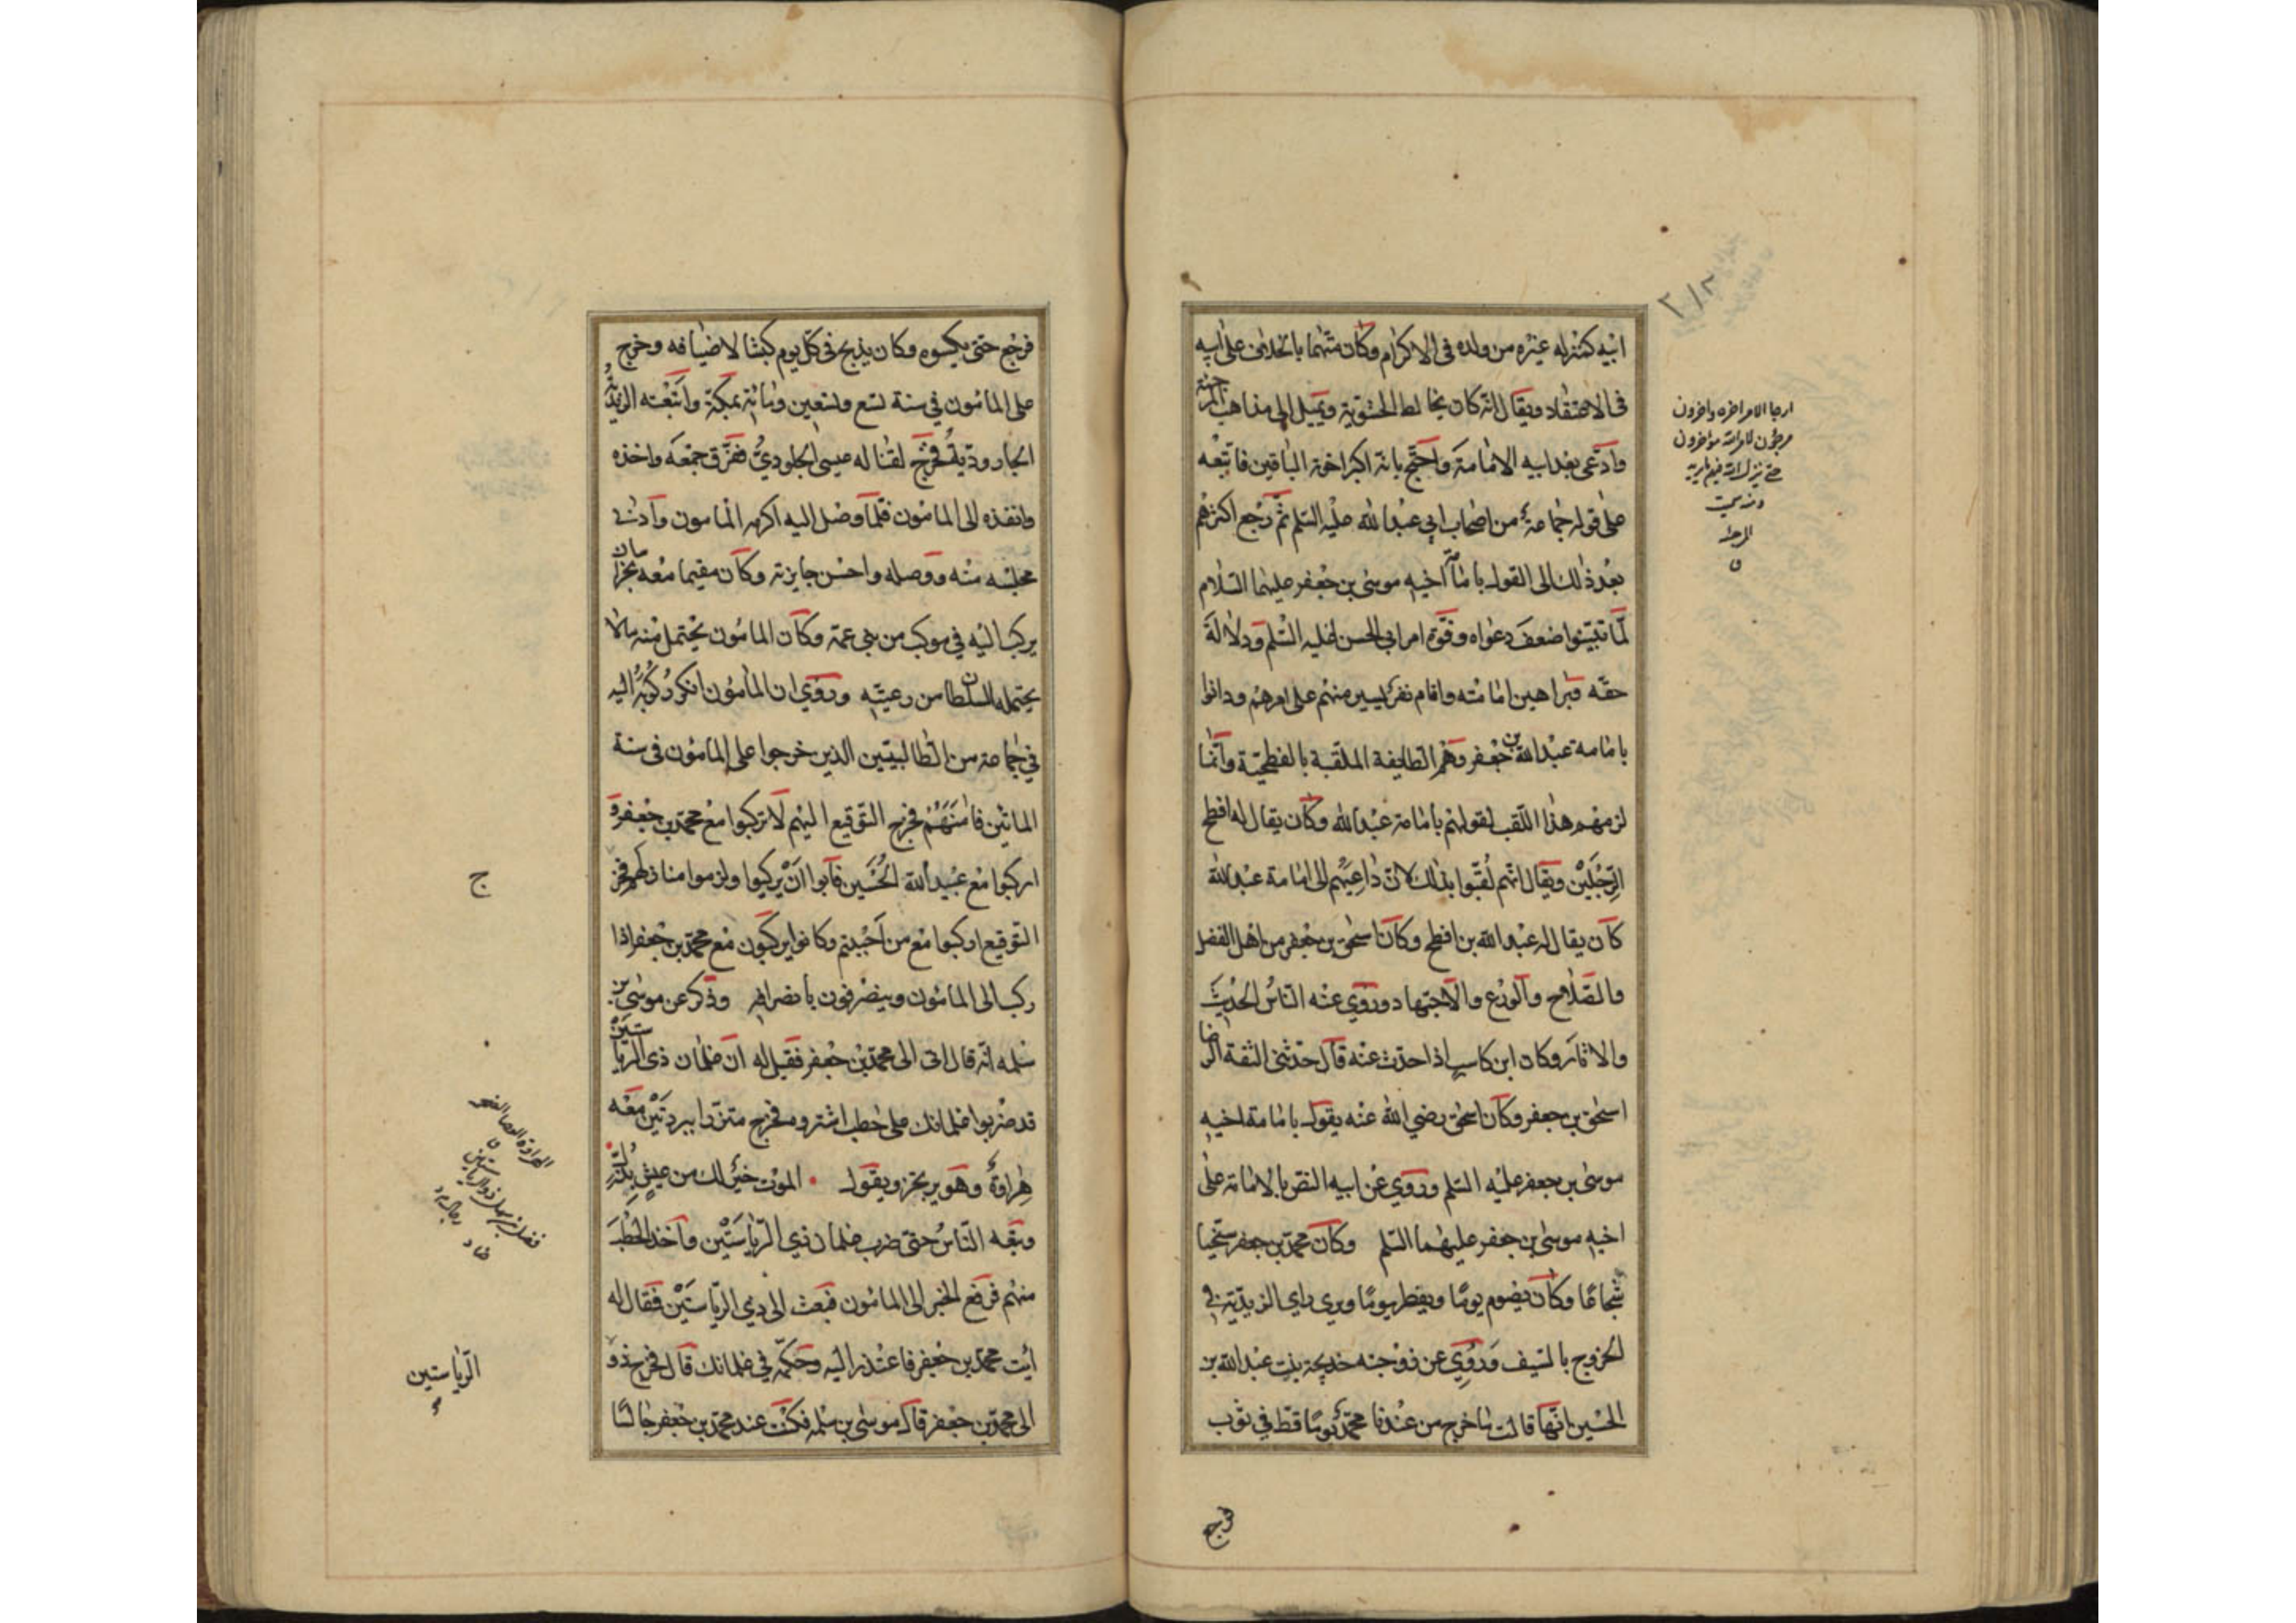 ابيه كمنزله غيره من ولده فى الاكرام وكان متهما بالخلاف على ابيه
فى الاعتقاد ويقال انه كان يخالط الحشوية ويميل الى مذاهب المرجئة
وادعى بعد ابيه الامامة واحتج بانه اكبر اخوته الباقين فاتبعه
على قوله جماعة من اصحاب ابي عبد الله عليه السلم ثم رجع اكثرهم
بعد ذلك الى القول بامامة اخيه موسى بن جعفر عليهما السلام
لما تبينوا ضعف دعواه وقوة امر ابي الحسن عليه السلم ودلالة
حقه وبراهين امامته واقام نفر يسير منهم على امرهم ودانوا
بامامة عبد الله بن جعفر وهم الطايفة الملقبة بالفطحية وانما
لزمهم هذا اللقب لقولهم بامامة عبد الله وكان يقال له افطح
الرجلين ويقال انهم لقبوا بذلك لان داعيهم الى امامة عبد الله
كان يقال له عبد الله بن افطح وكان اسحق بن جعفر من اهل الفضل
والصلاح والورع والاجتهاد وروي عنه الناس الحديث
والاثار وكان ابن كاسب اذا حدث عنه قال حدثنى الثقة الرضا
اسحق بن جعفر وكان اسحق رضي الله عنه يقول بامامة اخيه
موسى بن جعفر عليه السلم وروي عن ابيه النص بالامامة على
اخيه موسى بن جعفر عليهما السلم وكان محمد بن جعفر سخيا
شجاعا وكان يصوم يوما ويفطر يوما ويرى راى الزيدية في
الخروج بالسيف وروي عن زوجته خديجة بنت عبد الله بن
الحسين انها قالت ما خرج من عندنا محمد يوما قط في ثوب
ارجا الامر اخره واخرون
مرجؤن لامر الله مؤخرون
حتى ينزل الله فيهم ما يريد
ومنه سميت
المرجئة
ق
فرجع
فرجع حتى يكسوه وكان يذبح في كل يوم كبشا لاضيافه وخرج
على المامون في سنة تسع وتسعين ومائة بمكة واتبعته الزيدية
الجارودية فخرج لقتاله عيسى الجلودي ففرق جمعه واخذه
وانفذه الى المامون فلما وصل اليه اكرمه المامون وادنى
مجلسه منه ووصله واحسن جايزته وكان مقيما معه بخراسان
يركب اليه في موكب من بني عمه وكان المامون يحتمل منه ما لا
يحتمله السلطان من رعيته وروي ان المامون انكر ركوبه اليه
في جماعة من الطالبيين الذين خرجوا على المامون فى سنة
الماتين فامنهم فخرج التوقيع اليهم لا تركبوا مع محمد بن جعفر و
اركبوا مع عبيد الله الحسين فابوا ان يركبوا ولزموا منازلهم فخرج
التوقيع اركبوا مع من احببتم وكانوا يركبون مع محمد بن جعفر اذا
ركب الى المامون وينصرفون بانصرافه وذكر عن موسى بن
سلمه انه قال اتى الى محمد بن جعفر فقيل له ان غلمان ذى الرياستين
قد ضربوا غلمانك على حطب اشتروه فخرج متزرا ببردتين معه
هراوة وهو يرتجز ويقول الموت خير لك من عيش بذل
وتبعه الناس حتى ضرب غلمان ذي الرياستين واخذ الحطب
منهم فرفع الخبر الى المامون فبعث الى ذي الرياستين فقال له
ايت محمد بن جعفر فاعتذر اليه وحكمه في غلمانك قال فخرج ذو
الى محمد بن جعفر قال موسى بن سلمه فكنت عند محمد بن جعفر جالسا
ج
الهراوة العصا الضخمة
ق
فضل بن سهل ذو الرياستين
الرياستين